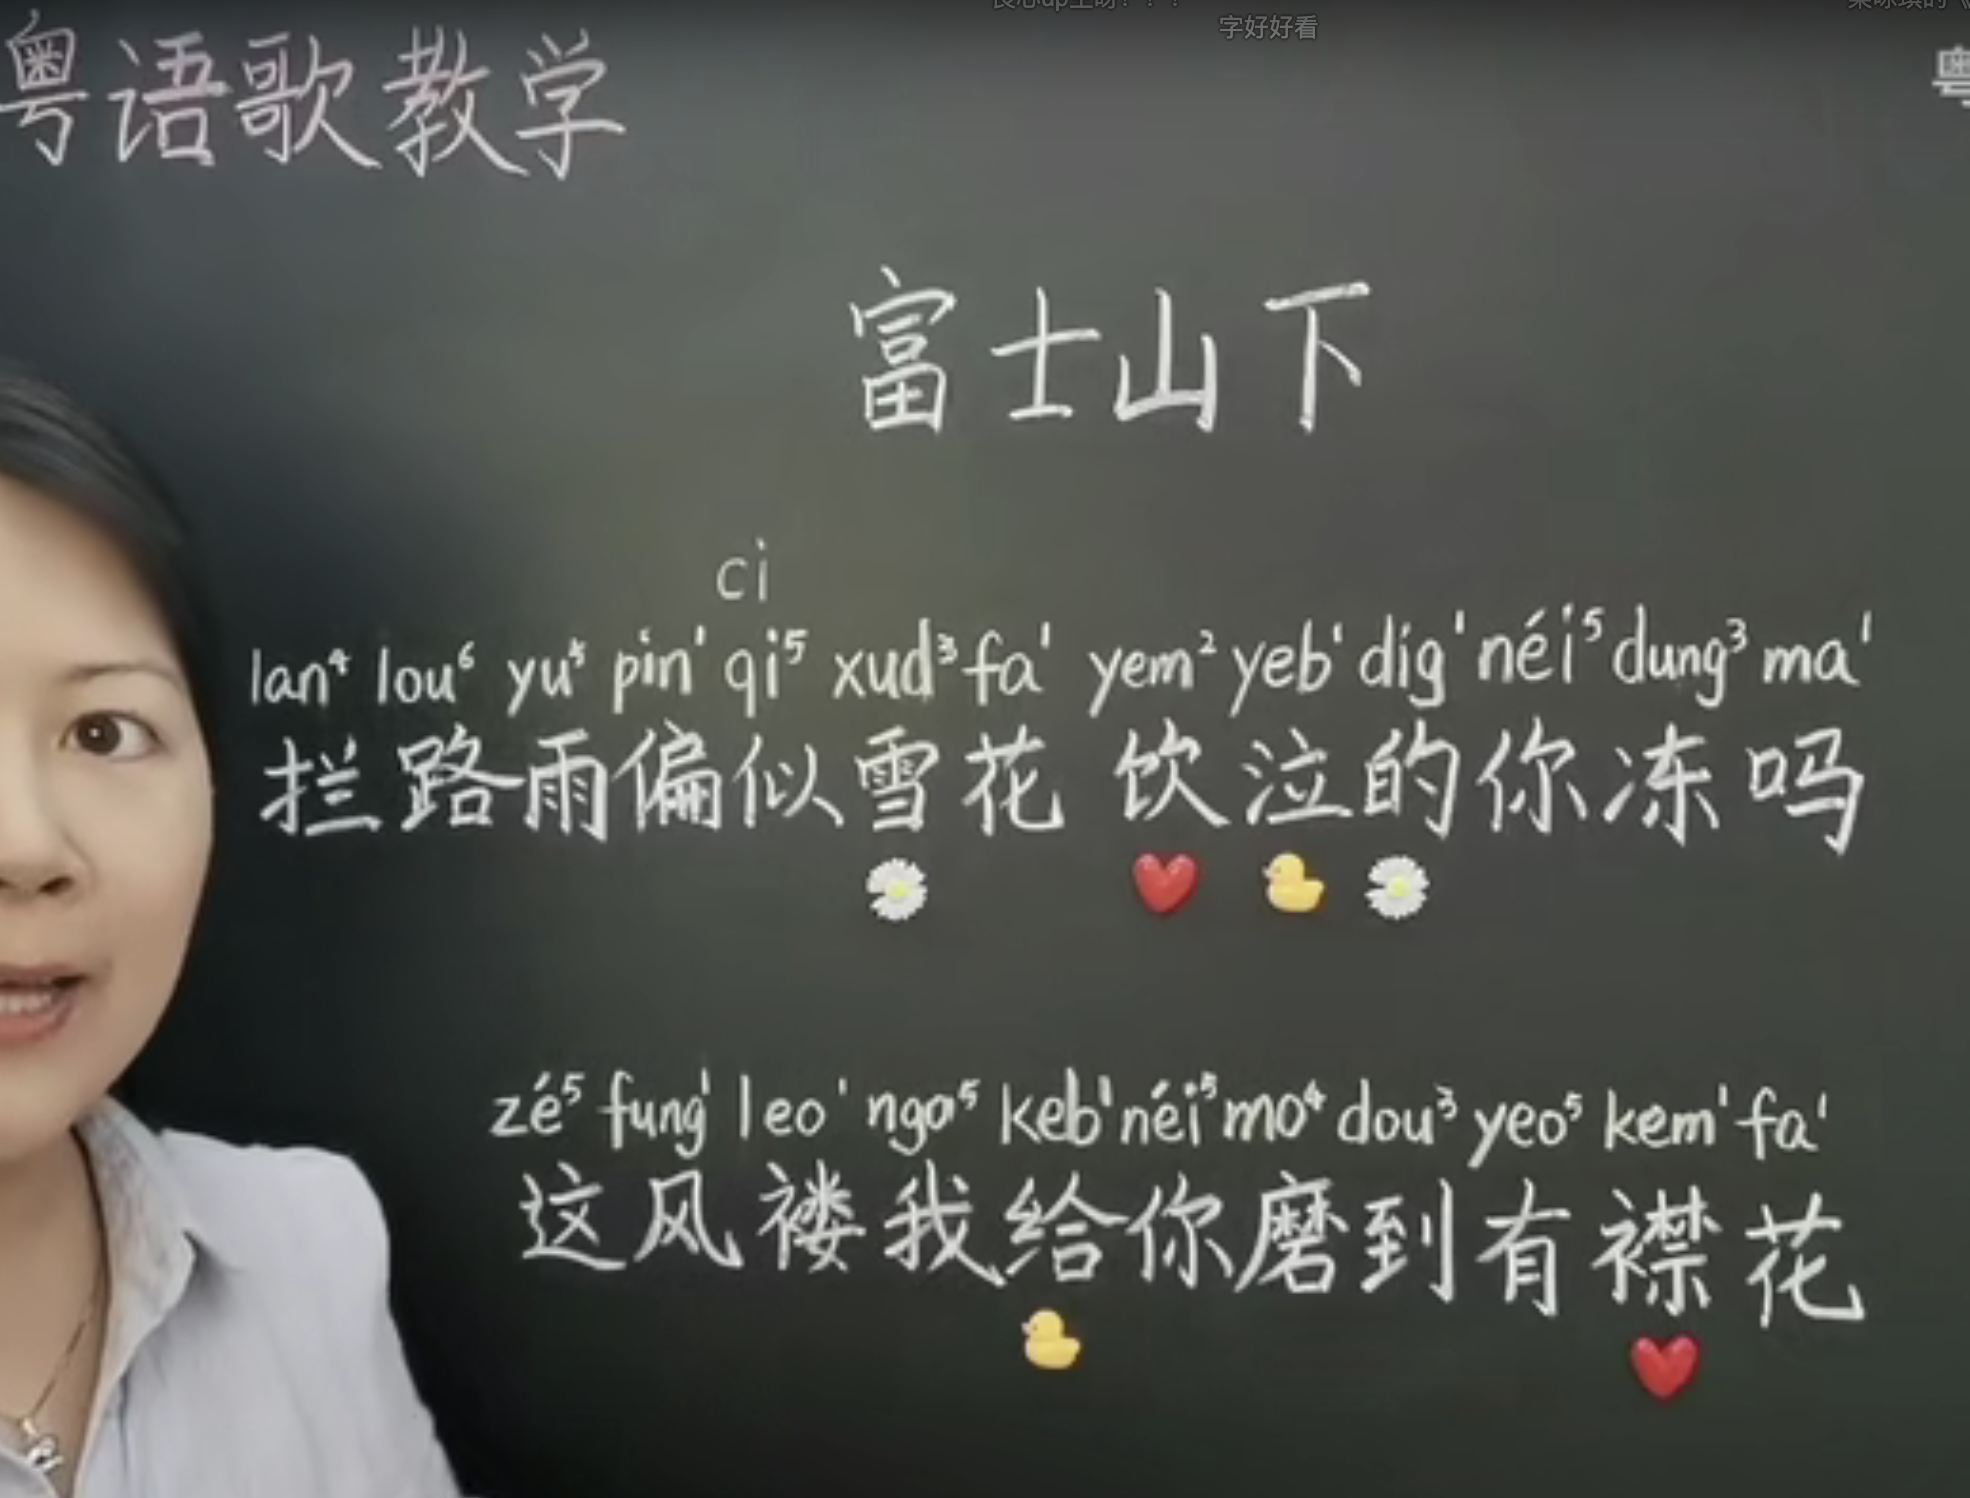 字好好看
粤语歌教学
粤
富士山下
ci
lan⁴ lou⁶ yu⁵ pin¹ qi⁵ xud³ fa¹ yem² yeb¹ dig¹ néi⁵ dung³ ma¹
拦路雨偏似雪花 饮泣的你冻吗
zé⁵ fung¹ leo¹ ngo⁵ keb¹ néi⁵ mo⁴ dou³ yeo⁵ kem¹ fa¹
这风褛我给你磨到有襟花